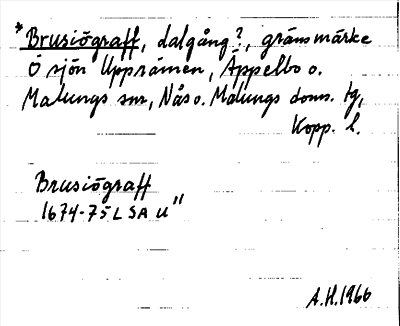 *Brusiögraff, dalgång?, gränsmärke
Ö sjön Upprämen, Äppelbo o.
Malungs snr, Nås o. Malungs doms. tg,
Kopp. l.
Brusiögraff
1674-75 LSA U"
A.H. 1966